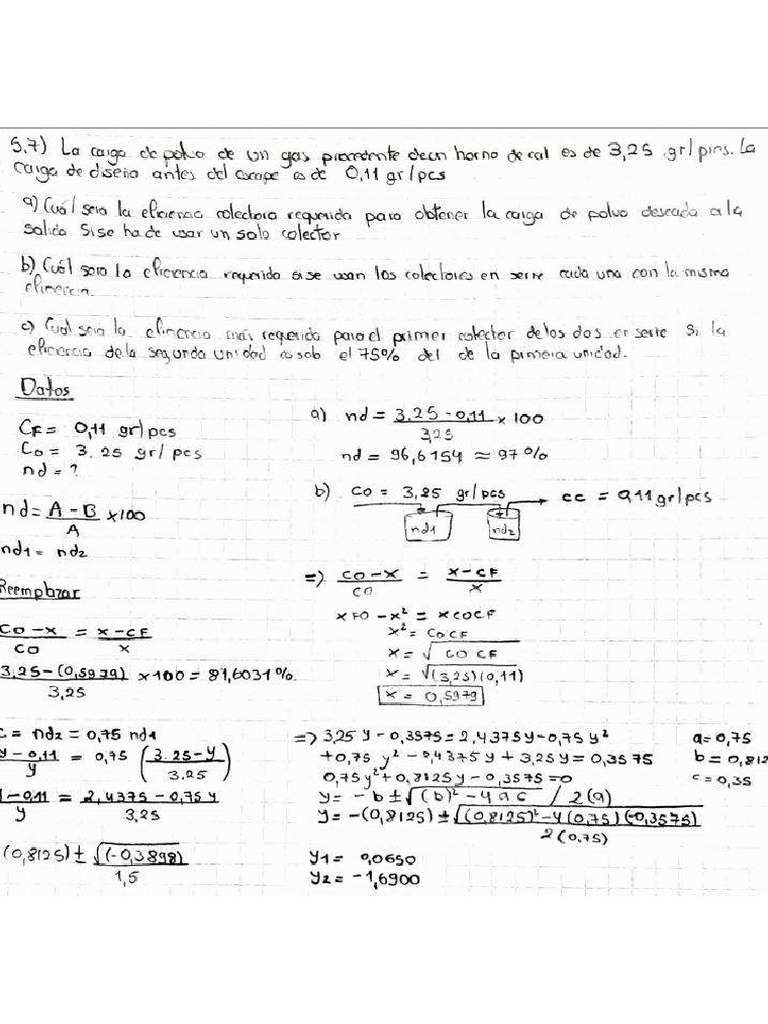 5.7) La carga de polvo de un gas procedente de un horno de cal es de 3,25 gr/pies. La
carga de diseño antes del escape es de 0,11 gr/pcs
a) Cuál sera la eficiencia colectora requerida para obtener la carga de polvo deseada a la
salida si se ha de usar un solo colector
b) Cuál sera la eficiencia requerida si se usan los colectores en serie cada una con la misma
eficiencia.
c) Cual sera la eficiencia más requerida para el primer colector de los dos en serie si la
eficiencia de la segunda unidad es sob el 75% del de la primera unidad.
Datos
CF = 0,11 gr/pcs
Co = 3.25 gr/pcs
nd = ?
nd = A - B / A x100
nd1 = nd2
a) nd = 3.25 - 0,11 / 3,25 x 100
nd = 96,6154 ≈ 97%
b) CO = 3,25 gr/pcs → cc = 0,11 gr/pcs
nd1 nd2
=) CO - X / CO = X - CF / X
XFO - X² = XCOCF
X² = COCF
X = √CO CF
X = √(3,25)(0,11)
X = 0,5979
Reemplazar
CO - X / CO = X - CF / X
3,25 - (0,5979) / 3,25 x100 = 81,6031%.
C = nd2 = 0,75 nd1
y - 0,11 / y = 0,75 (3.25 - y / 3.25)
y - 0,11 / y = 2,4375 - 0,75 y / 3,25
=) 3,25 y - 0,3575 = 2,4375y - 0,75 y²
+0,75 y² - 0,4375 y + 3,25 y = 0,3575
0,75y² + 0,8125 y - 0,3575 = 0
y = -b ± √(b)² - 4 a c / 2(a)
y = -(0,8125) ± √(0,8125)² - 4(0,75)(-0,3575) / 2(0,75)
a = 0,75
b = 0,812
c = 0,35
(0,8125) ± √(-0,3898) / 1,5
y1 = 0,0650
y2 = -1,6900